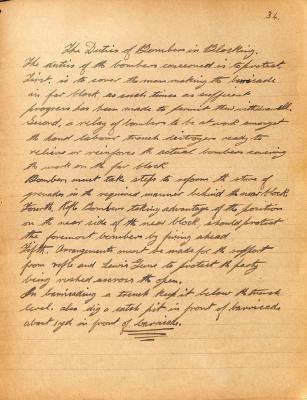 34.
The Duties of Bombers in Blocking.
The duties of the bombers concerned is to protect
First, is to cover the men making the barricade
on far block as such times as sufficient
progress has been made to permit their withdrawal.
Second, a relay of bombers to be at work amongst
the hand labour trench destroyers ready to
relieve or reinforce the actual bombers covering
the work on the far block
Bombers must take steps to reform the store of
grenades in the required manner behind the near block.
Fourth, Rifle Bombers taking advantage of the position
on the near side of the near block, should protect
the foremost bombers by firing ahead
Fifth. Arrangements must be made for the support
from rifle and Lewis Guns to protect the party
being rushed across the open.
In barricading a trench keep it below the trench
level. also dig a catch pit in front of barricade
about 15ds in front of barricade.